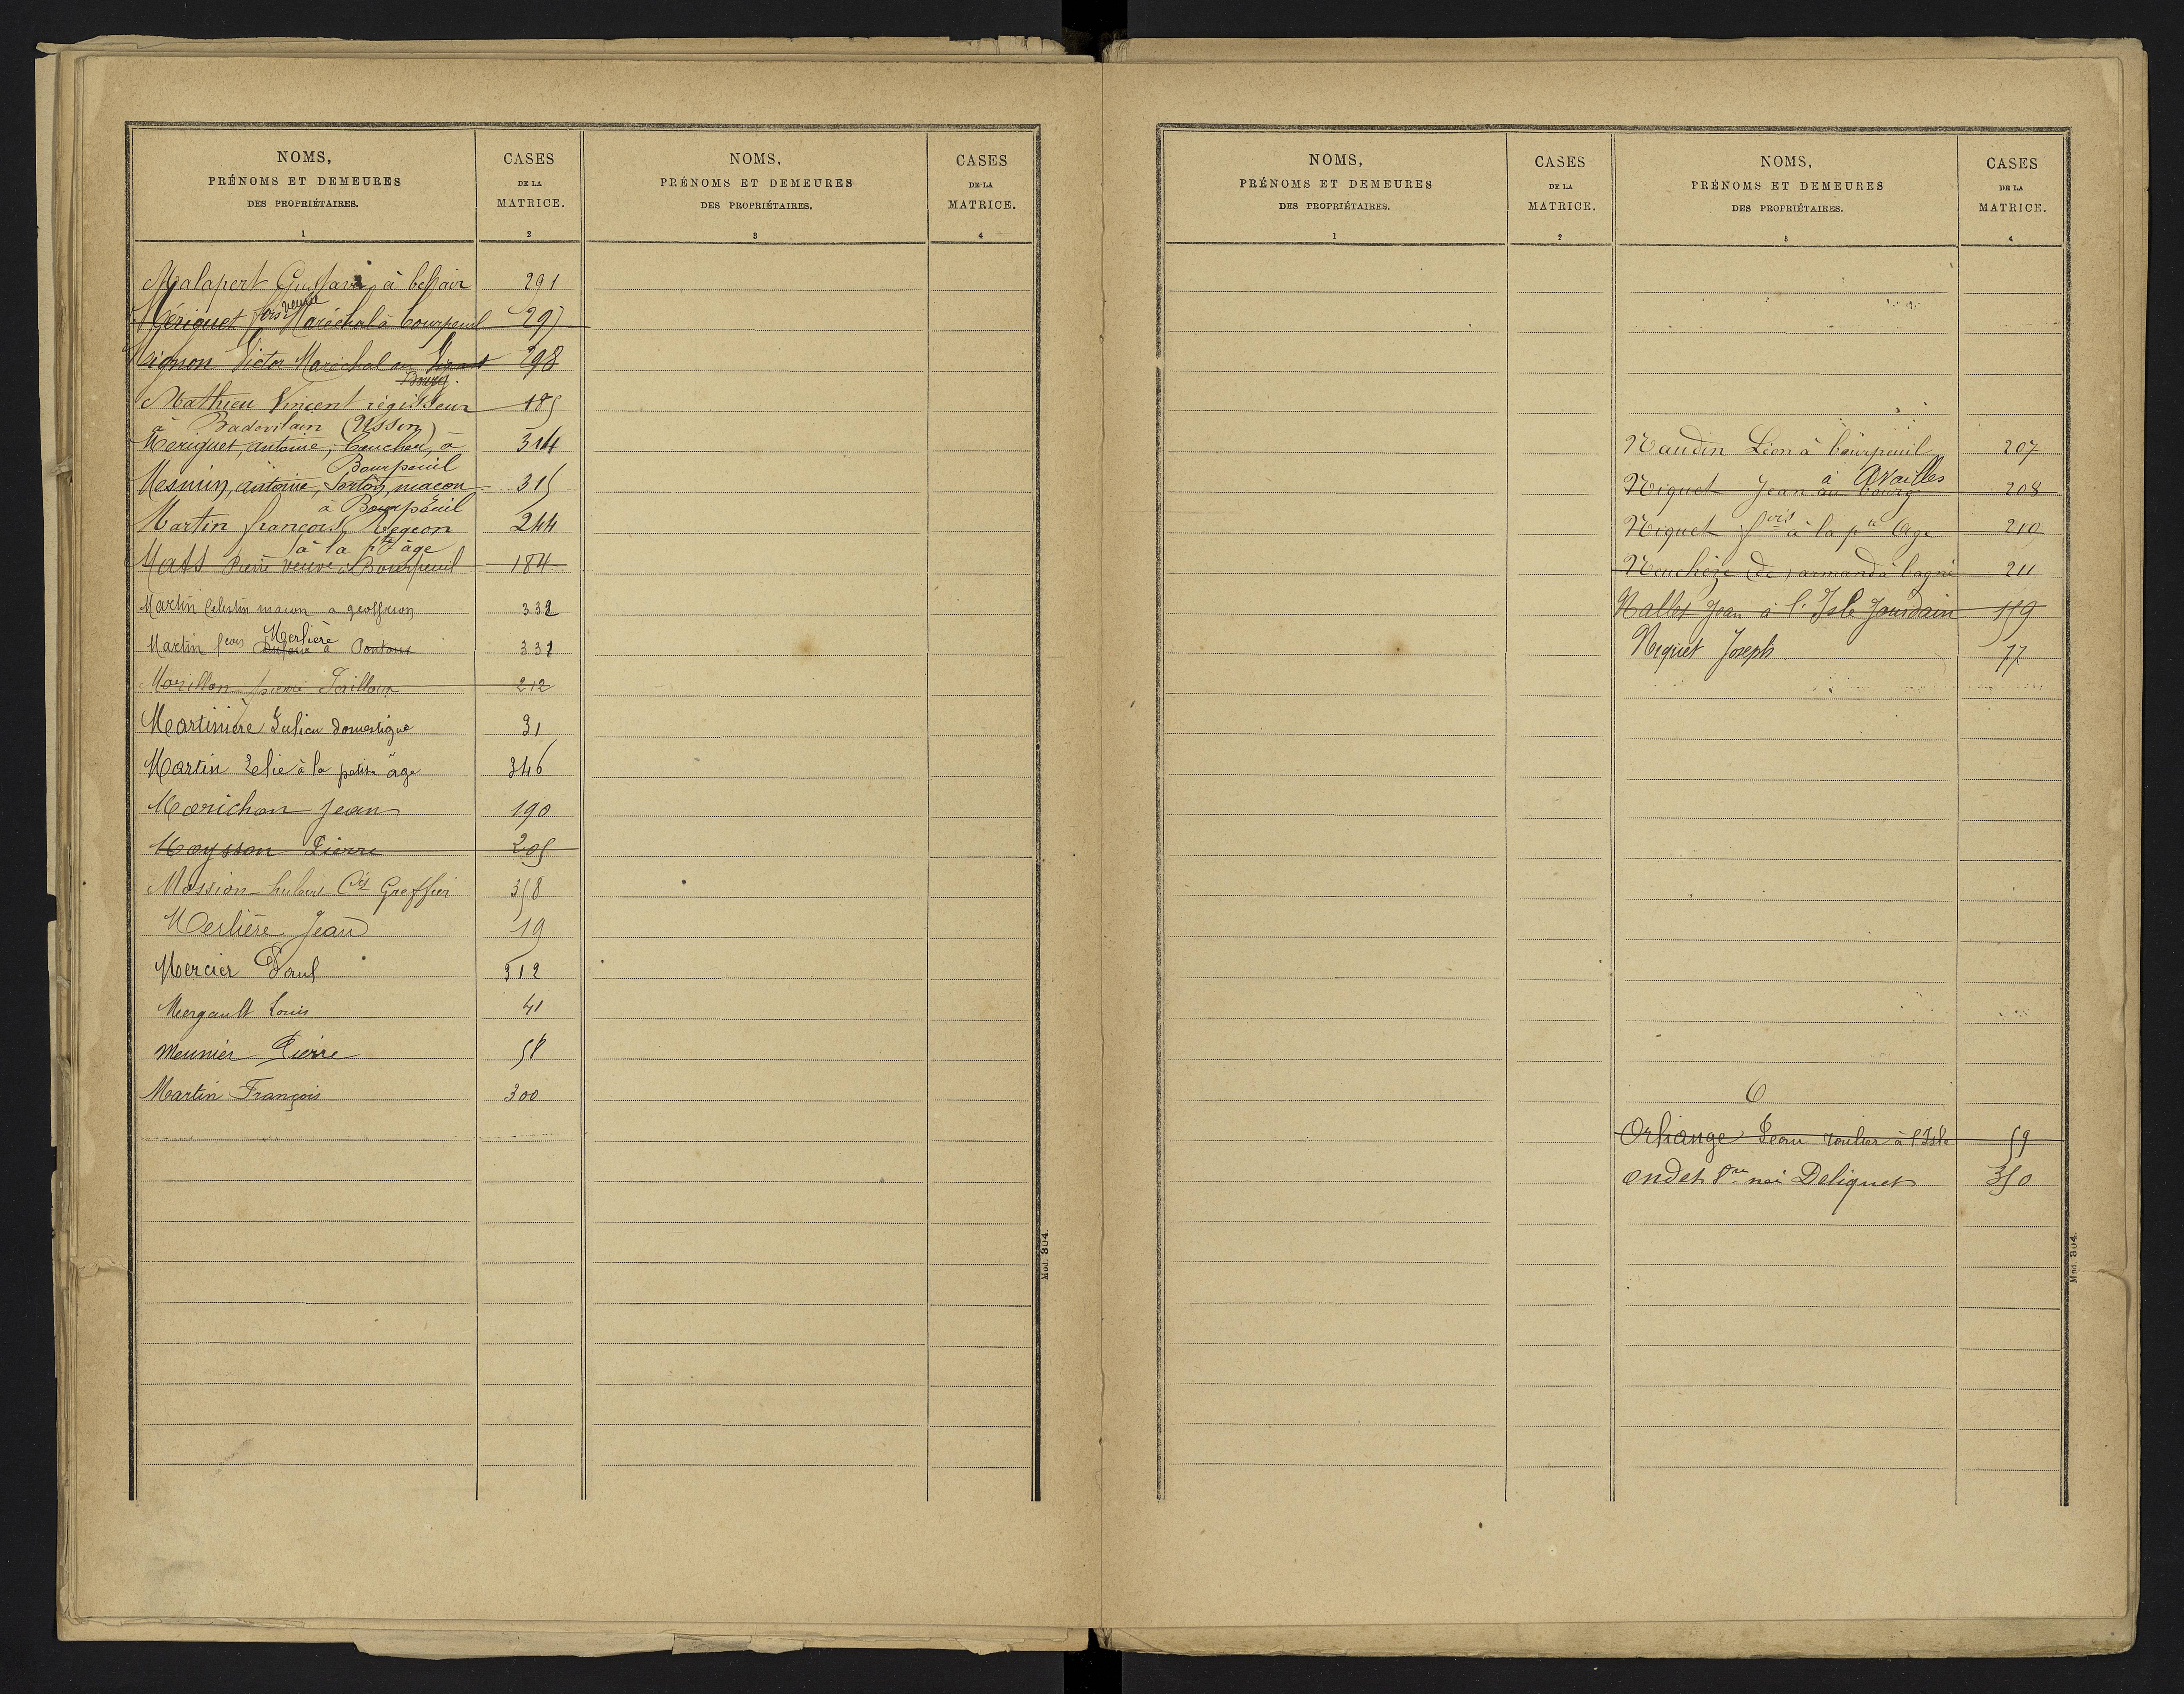 NOMS,
PRÉNOMS ET DEMEURES
DES PROPRIÉTAIRES.
1
CASES
DE LA
MATRICE.
2
NOMS,
PRÉNOMS ET DEMEURES
DES PROPRIÉTAIRES.
3
CASES
DE LA
MATRICE.
4
Malapert Gustave à belair 291
veuve
Mériguet fois Maréchal à bourpeuil 297
Mignon Victor Maréchal au 298
Bourg
Mathieu Vincent régisseur 185
à Badevilain (Usson)
Meriguet, antoine, à 314
Bourpeuil
Mesmin, antoine, macon 315
à Bourpeuil
Martin françois Pegeon 244
à la pte âge
Mats Pierre veuve à Bourpeuil 184
Martin Celestin macon a geoffrion 332
Merlière
Martin fcois à Pontoux 331
Morillon pierre 212
Martinière Julien domestique 31
Martin Zelie à la petite âge 346
Marichon Jean 190
Moysson Pierre 205
Mossion hubert Greffier 358
Merlière Jean 19
Mercier Paul 312
Mergault Louis 41
Meunier Pierre 58
Martin François 300
Mod. 304.
NOMS,
PRÉNOMS ET DEMEURES
DES PROPRIÉTAIRES.
1
CASES
DE LA
MATRICE.
2
NOMS,
PRÉNOMS ET DEMEURES
DES PROPRIÉTAIRES.
3
CASES
DE LA
MATRICE.
4
Naudin Léon à bourpeuil 207
à Availles
Niquet Jean au bourg 208
Niquet fois à la pte Age 210
Neuchèze (de) armand à bagné 211
Nallet Jean à l'Isle Jourdain 119
Niquet Joseph 77
O
Orhange Jean roulier à l'Isle 59
ondet Vve née Deliquet 350
Mod. 304.